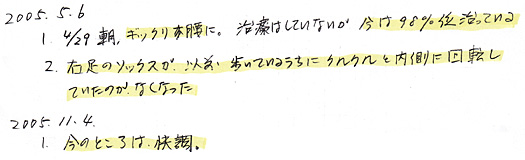 2005. 5. 6
1. 4/29 朝、ギックリ腰に。治療はしていないが 今は98%位治っている
2. 右足のソックスが、以前 歩いているうちにクルクルと内側に回転し
ていたのが、なくなった
2005. 11. 4.
1. 今のところは、快調。